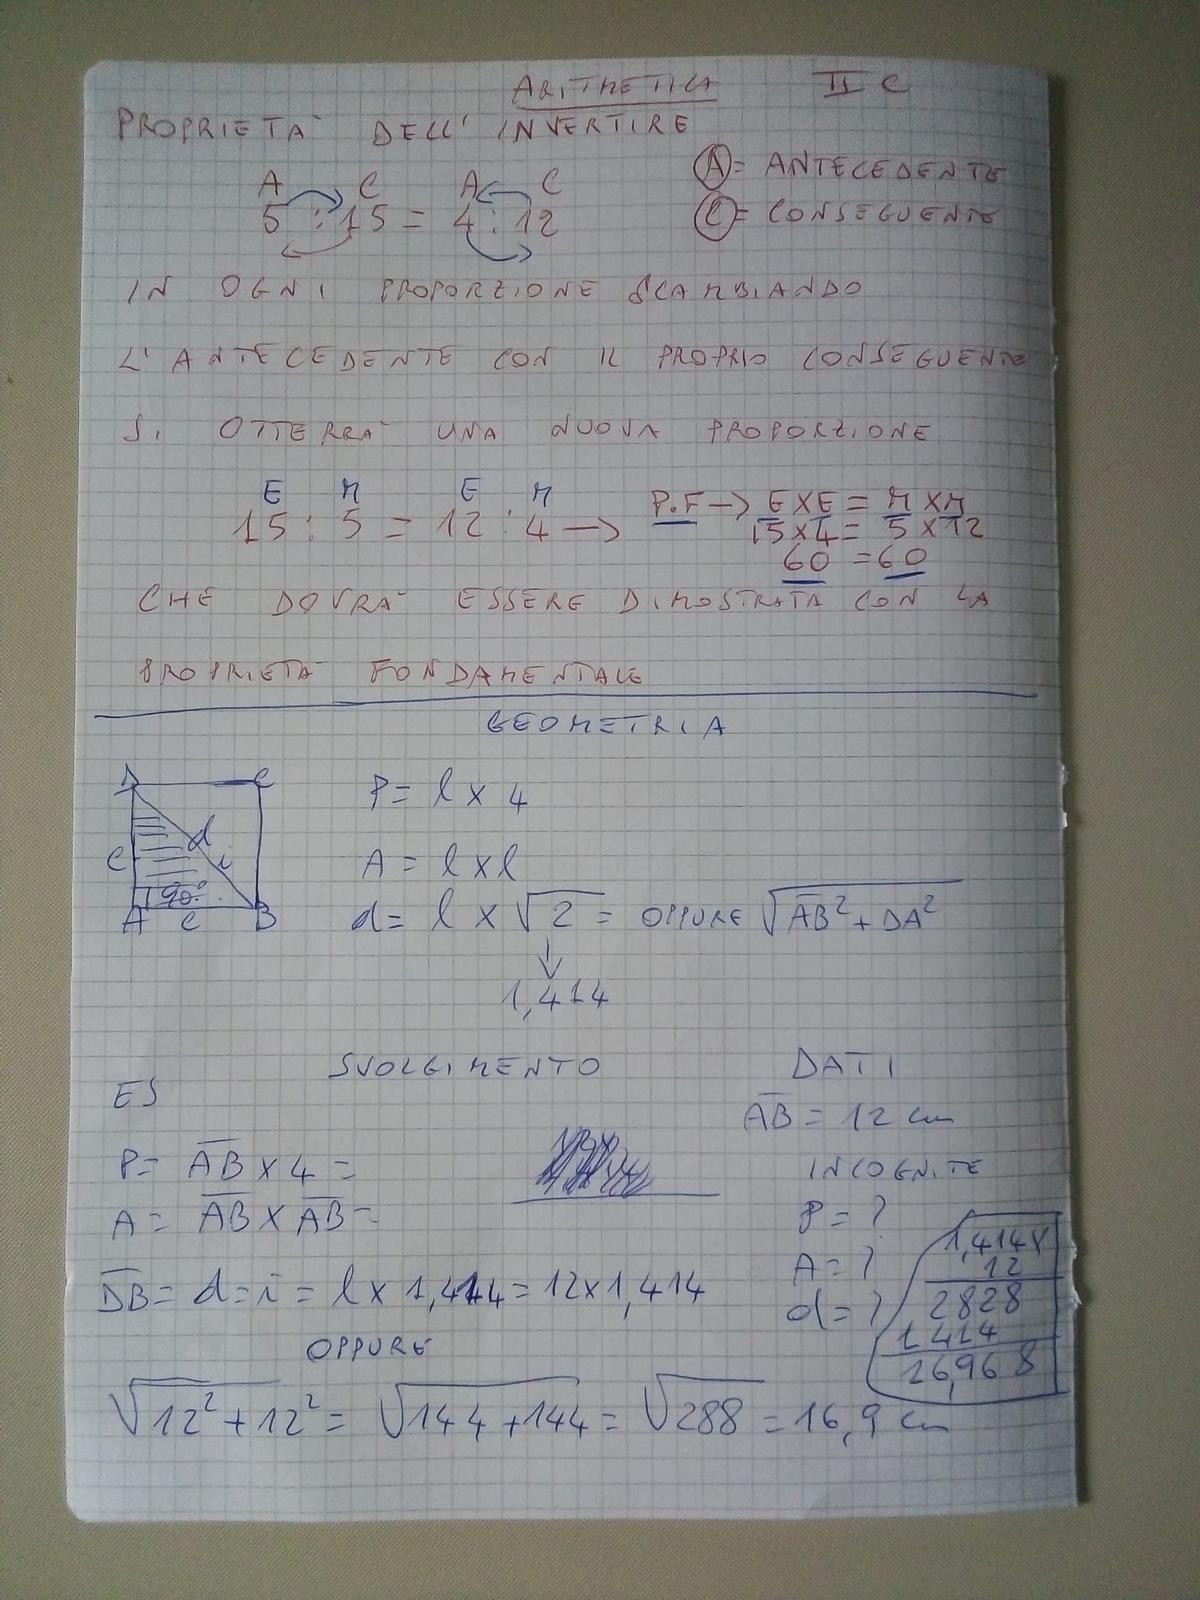 ARITMETICA II C
PROPRIETA' DELL'INVERTIRE
A C A C
5 : 15 = 4 : 12
A = ANTECEDENTE
C = CONSEGUENTE
IN OGNI PROPORZIONE SCAMBIANDO
L'ANTECEDENTE CON IL PROPRIO CONSEGUENTE
SI OTTERRA' UNA NUOVA PROPORZIONE
E M E M
15 : 5 = 12 : 4 → P.F → E X E = M X M
15 x 4 = 5 x 12
60 = 60
CHE DOVRA' ESSERE DIMOSTRATA CON LA
PROPRIETA' FONDAMENTALE
GEOMETRIA
D C
d
C i
90°
A C B
P = l x 4
A = l x l
d = l x √2 = OPPURE √AB² + DA²
↓
1,414
SVOLGIMENTO
ES
P = AB x 4 =
A = AB X AB =
DB = d = i = l x 1,414 = 12 x 1,414
OPPURE
√12² + 12² = √144 + 144 = √288 = 16,9 cm
DATI
AB = 12 cm
INCOGNITE
P = ?
A = ?
d = ?
1,414x
12
2828
1414
16,968